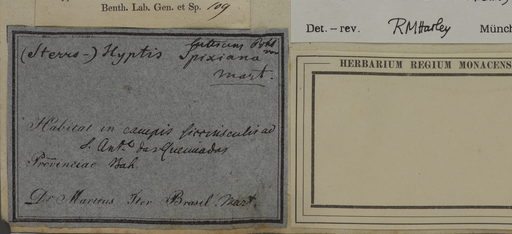 Benth. Lab. Gen. et Sp. 109
Det. – rev. RMHarley Münch
HERBARIUM REGIUM MONACENS
(Sterro-) Hyptis frutescens Pohl
Spixiana
mart.
Habitat in campis sicciusculis ad
S. Ant.º das Queimadas
Provinciae Bah.
Dr Martius Iter Brasil. Mart.